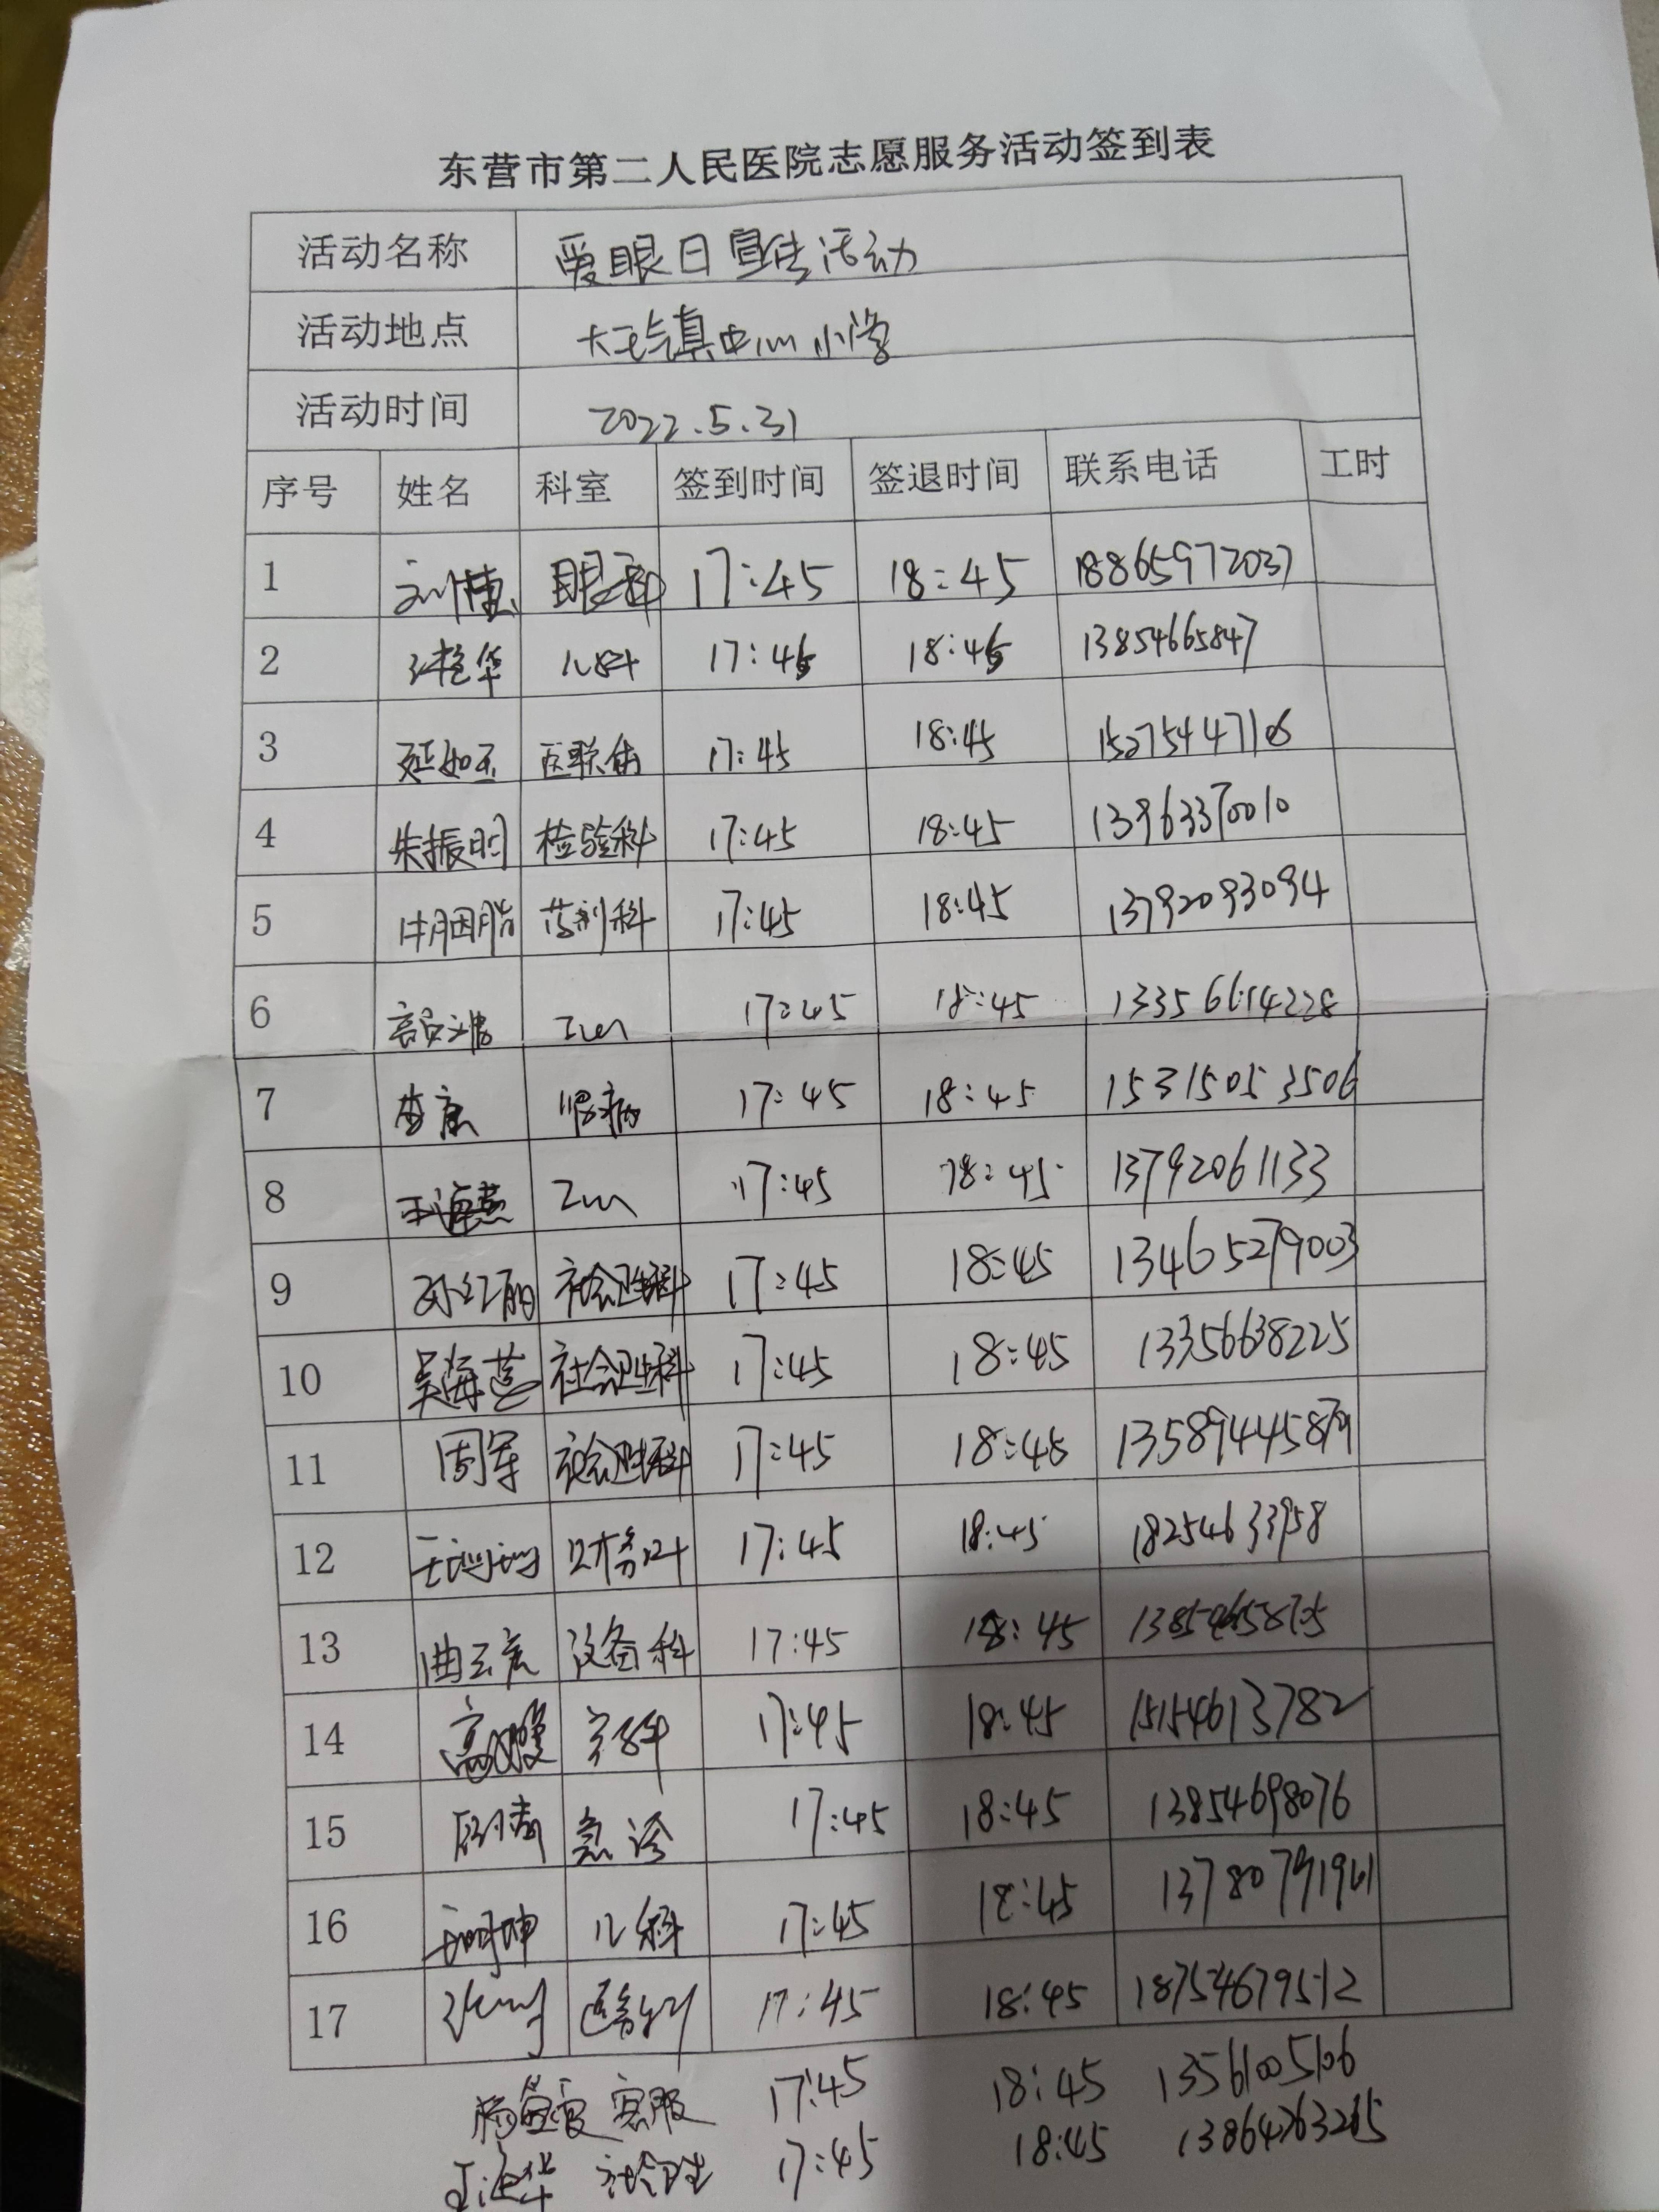 东营市第二人民医院志愿服务活动签到表
活动名称 爱眼日宣传活动
活动地点 大王镇中心小学
活动时间 2022.5.31
序号 姓名 科室 签到时间 签退时间 联系电话 工时
1 眼科 17:45 18:45 18865972037
2 儿科 17:45 18:45 13854665847
3 延如玉 医联体 17:45 18:45 15275447706
4 朱振明 检验科 17:45 18:45 13963370010
5 胭脂 药剂科 17:45 18:45 13792093094
6 17:45 18:45 13356614228
7 李康 肾病 17:45 18:45 15315053506
8 王海燕 17:45 18:45 13792061133
9 孙红丽 社会卫生科 17:45 18:45 13465279003
10 吴海莲 社会卫生科 17:45 18:45 13356638225
11 周军 社会卫生科 17:45 18:45
12 财务科 17:45 18:45 18254633958
13 曲云宏 设备科 17:45 18:45
14 高媛 17:45 18:45 15154613782
15 急诊 17:45 18:45 13854698076
16 儿科 17:45 18:45 13780791961
17 17:45 18:45 18754679512
客服 17:45 18:45 13561005106
王海华 社会卫生 17:45 18:45